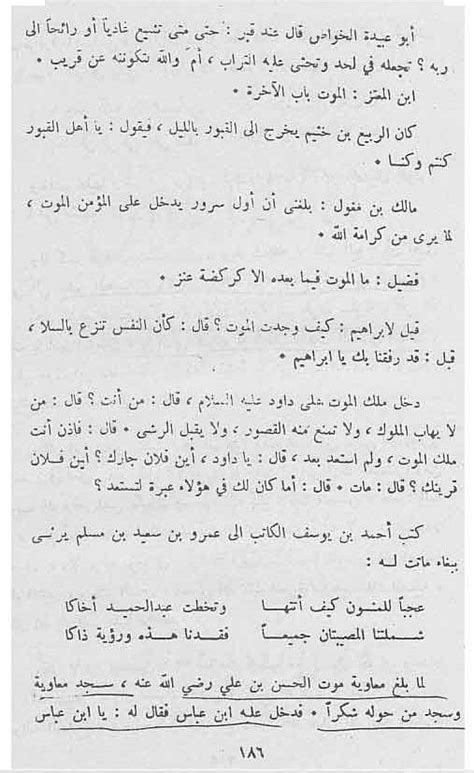 أبو عبيدة الخواص قال عند قبر : حتى متى تشيع غادياً أو رائحاً الى
ربه ؟ تجعله في لحد وتحثى عليه التراب ، أم والله لتكوننه عن قريب *
ابن المعتز : الموت باب الآخرة *
كان الربيع بن خثيم يخرج الى القبور بالليل ، فيقول : يا أهل القبور
كنتم وكنا *
مالك بن مغول : بلغنى أن أول سرور يدخل على المؤمن الموت ،
لما يرى من كرامة الله *
فضيل : ما الموت فيما بعده الا كركضة عنز *
قيل لابراهيم : كيف وجدت الموت ؟ قال : كأن النفس تنزع بالسلا ،
قيل : قد رفقنا بك يا ابراهيم *
دخل ملك الموت على داود عليه السلام ، قال : من أنت ؟ قال : من
لا يهاب الملوك ، ولا تمنع منه القصور ، ولا يقبل الرشى * قال : فاذن أنت
ملك الموت ، ولم استعد بعد ، قال : يا داود ، أين فلان جارك ؟ أين فلان
قرينك ؟ قال : مات * قال : أما كان لك في هؤلاء عبرة لتستعد ؟
كتب أحمد بن يوسف الكاتب الى عمرو بن سعيد بن مسلم يرثي
ببغاء ماتت له :
عجباً للمنون كيف أتتها وتخطت عبدالحمد أخاكا
شملتنا المصيبتان جميعاً فقدنا هذه ورؤية ذاكا
لما بلغ معاوية موت الحسن بن علي رضي الله عنه ، سجد معاوية
وسجد من حوله شكراً * فدخل عليه ابن عباس فقال له : يا ابن عباس
١٨٦